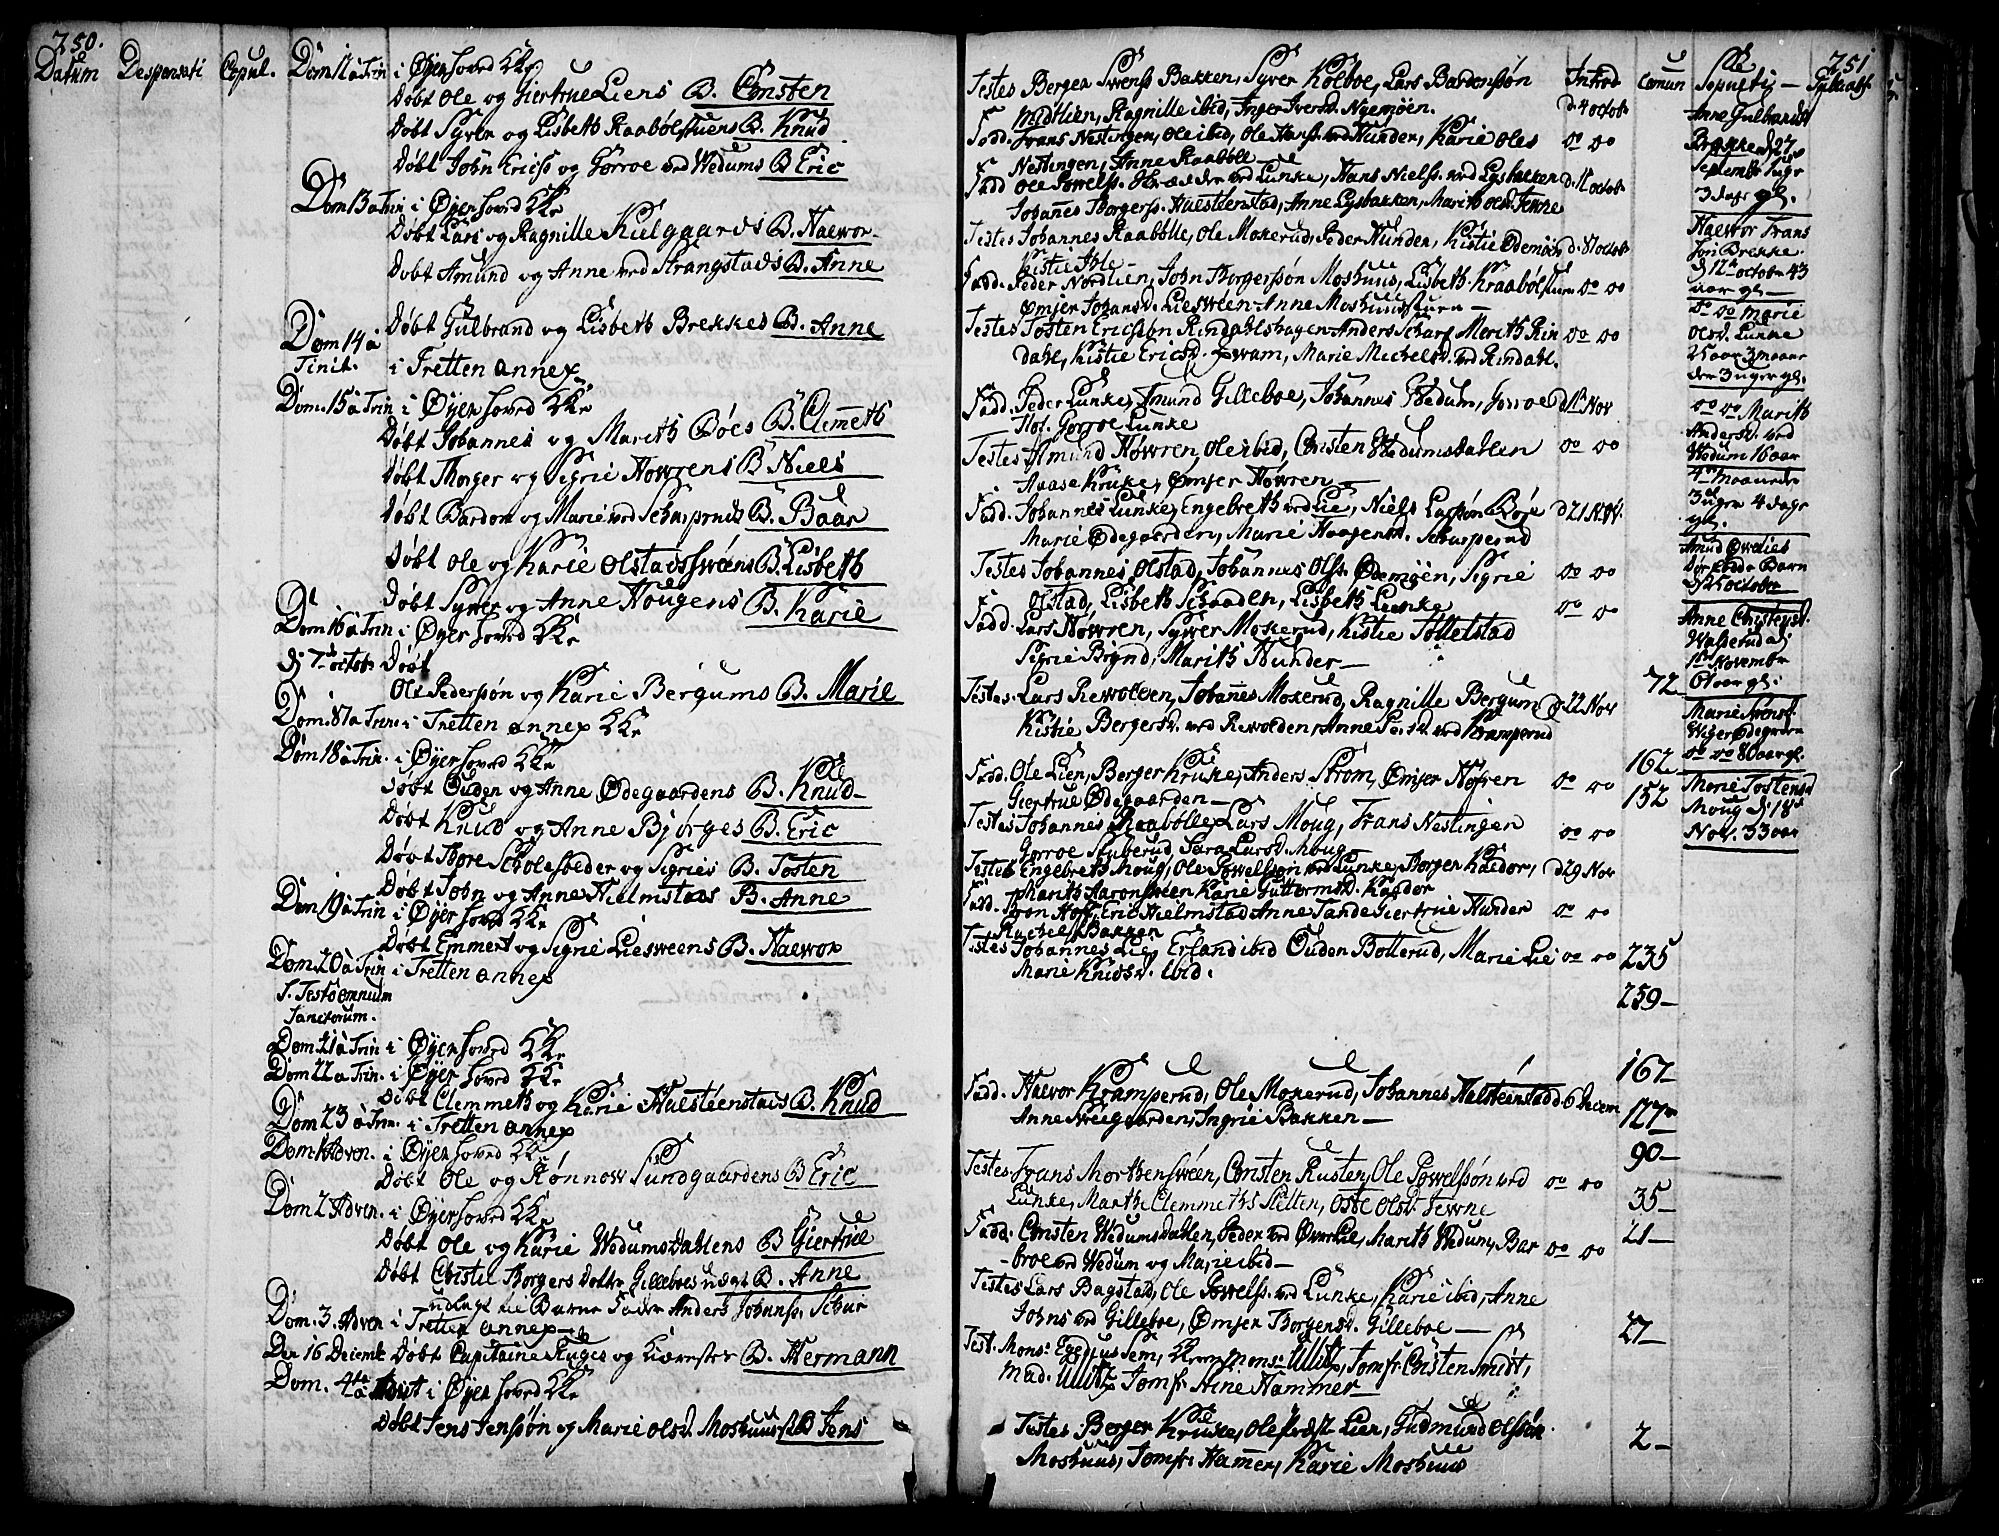 250.
Datum Desponsati Copul. Dom 12 a Trin i Øyer hoved KKe
Døbt Ole og Giertrue Liens B. Consten
Døbt Syver og Lisbeth Raabølstuens B. Knud
Døbt John Ericss og Gorroe ved Wedums B Eric
Dom 13 a Trin i Øyer hoved KKe
Døbt Lars og Ragnille Kulgaards B. Haewor
Døbt Amund og Anne ved Strangstads B. Anne
Døbt Gulbrand og Lisbeth Brekkes B. Anne
Dom 14 a
Trinit. i Tretten annex
Dom. 15 a Trin i Øyer hoved KKe
Døbt Johannes og Marith Bøes B. Clemeth
Døbt Thorger og Sigrie Høwrens B Niels
Døbt Bardon og Marie ved Scharpruds B. Baar
Døbt Ole og Karie Olstadssweens B. Lisbeth
Døbt Syver og Anne Hougens B. Karie
Dom 16 a Trin i Øyer hoved KKe
d 7de octobr Døbt
Ole Pedersøn og Karie Bergums B. Marie
Dom. 17 a Trin. i Tretten annex KKe
Dom 18 a Trin. i Øyer hoved KKe
Døbt Ouden og Anne Ødegaardens B. Knud
Døbt Knud og Anne Bjørges B. Eric
Døbt Thore Scholeholder og Sigries B. Tosten
Døbt John og Anne Hielmstads B. Anne
Dom 19 a Trin i Øyer hoved KKe
Døbt Emmert og Sigrie Liesweens B. Haewor
Dom. 20 a Trin i Tretten annex
S. Festo omnium
Sanctorum.
Dom 21 a Trin i Øyer hoved KKe
Dom 22 a Trin. i Øyer hoved KKe
Døbt Clemmeth og Karie Haestienstads B. Knud
Dom 23 a Trin. i Tretten annex
Dom 1 Adven. i Øyer hoved KKe
Døbt Ole og Rønnow Sundgaardens B Eric
Dom 2 Adven. i Øyer hoved KKe
Døbt Ole og Karie Wedumsdahlens B Giertrue
Døbt Christie Borgers Dotter Gilleboes uægt B. Anne
udlagt til Barne Fader Anders Johanss. Schar
Dom. 3. Adven i Tretten annex
Den 16 Decembr Døbt Capitaine Ruges og Kiærestes B. Hermann
Dom. 4ta Advent i Øyer hoved KKe
Døbt Jens Jenssøn og Marie Olsd. Moshuus B Jens
251
Testes Berger Swenss Bakken, Syver Kolboe, Lars Bardenssøn Introd Comun Sepulti
Midtlien, Ragnille ibid, Inger Iversd. Nyemøen. d. 4 octobr
Fadd. Frans Nestingen, Ole ibid, Ole Hanss. ved Hunder, Karie Oles do do
Nestingen, Anne Raabøle
Fadd Ole Powelss. ved Lunke, Hans Nielss. ved Lysbakken d. 11 octobr
Johannes Borgerss. Haestienstad, Anne Lysbakken, Marith Olsd. Tewne
Testes Johannes Raabølle, Ole Moxerud, Peder Hunder, Kistie Ødemøen
Fadd. Peder Nordlien, John Borgerssøn Moshuus, Lisbeth Kraabølstuen do do
Ømjer Johansd. Liesween Anne Moshuusstuen
Testes Tosten Ericssøn Rindahlshagen Anders Scharf Marith Rin do do
dahl, Kistie Ericsd. Swam, Marie Michelsd. ved Rindahl.
Fadd. Peder Lunke, Amund Gilleboe, Johannes Wedum, Gorroe d 1te Nov
Hof. Gorroe Lunke
Testes Amund Høwren, Ole ibid, Christen Wedumsdahlen do do
Aase Kruke, Ømjer Høwren
Fadd. Johannes Lunke, Engebreth ved Lie, Niels Larssøn Bøe d 21 Nov.
Marie Ødegaarden, Marie Haagensd. Scharperud
Testes Johannes Olstad, Johannes Olss. Ødemøen, Sigrie do do
Olstad, Lisbeth Schaaden, Lisbeth Lunke
Fadd. Lars Høwren, Sywer Moxerud, Kistie Tollelstad do do
Sigrie Brynd, Marith Hunder
Testes. Lars Rewolden, Johannes Moxerud, Ragnille Bergum d. 22 Nov 72
Kistie Bergersd. ved Rewolden, Anne ved Kramperud
Fadd. Ole Lien, Berger Kruke, Anders Strøm, Ømjer Høfren do do 162
Giertrue Ødegaarden 152
Testes Johannes Raabølle, Lars Moug, Frans Nestingen do do
Gorroe Skyberud, Sara Larsd. Moug
Testes Engebreth Moug, Ole Powelssøn ved Lunke, Borger Kaldor, d 29 Nov
Marith Aaronsween Karie Guttormsd. Kaldor
Fadd. Iwon Hoff, Eric Hielmstad Anne Tande Giertrue Hunder do do
Rachel Bakken
Testes Johannes Lie, Erland ibid Ouden Botterud, Marie Lie do do 235
Marie Knudsd. ibid.
259
167
Fadd. Haewor Kramperud, Ole Moxerud, Johannes Halsteenstad d 6 Decem 127
Anne Sweegaarden, Ingrie Bakken
90
Testes Frans Morthensween, Christen Rusten, Ole Powelssøn ved do do
Lunke, Marth Clemmeths Sletten, Oste Olsd. Tewne 35
Fadd. Christen Wedumsdahlen, Peder ved Øwerlie, Marith Wedum, Bar do do 21
broe ved Wedum og Marie ibid
Testes Lars Bagstad, Ole Powelss. ved Lunke, Karie ibid, Anne
Johns ved Gilleboe, Ømjer Borgersd. Gilleboe 27
Test. Mons: Egedius Sem, Mons: Ulllitz, Jomfr: Christen Smidt,
Mad. Ulllitz Jomfr. Anne Hammer
Testes Berger Kruke, Ole Lien, Gudmund Olssøn 2
Moshuus, Jomfr. Hammer, Karie Moshuus
Anne Gulbrands
Brekke d 27
Septembr
3 dage gl.
Haewor Frans
Søn Brekke
d 12te octobr 43
aar gl.
do do Marie
Olsd. Lunke
25 aar 3 maaner
der 3 uger gl.
do do Marith
Andersd. ved
Wedum 16 aar
4re maaneder
3 uger 4 dage
gl.
Amund Øwerlies
Dødfødde Barn
d 25 octobr
Anne Christensd.
Walserud d
1te Novembr
61 aar gl.
Marie
Ødegaarden
do do 80 aar gl.
Marie Tostensd
Moug d 18de
Nov. 33 aar